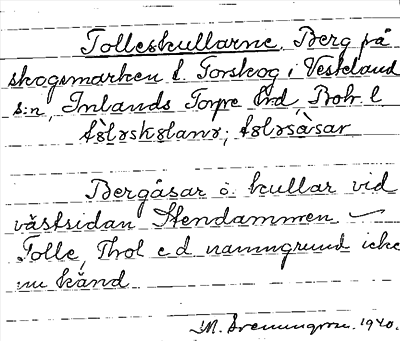 Tolleskullarne. Berg på
skogsmarken t. Torskog i Vesteland
s:n, Inlands Torpe hrd, Boh. l
Bergåsar o. kullar vid
västsidan Stendammen
Tolle, Thol e d namngrund icke
nu känd
1940.